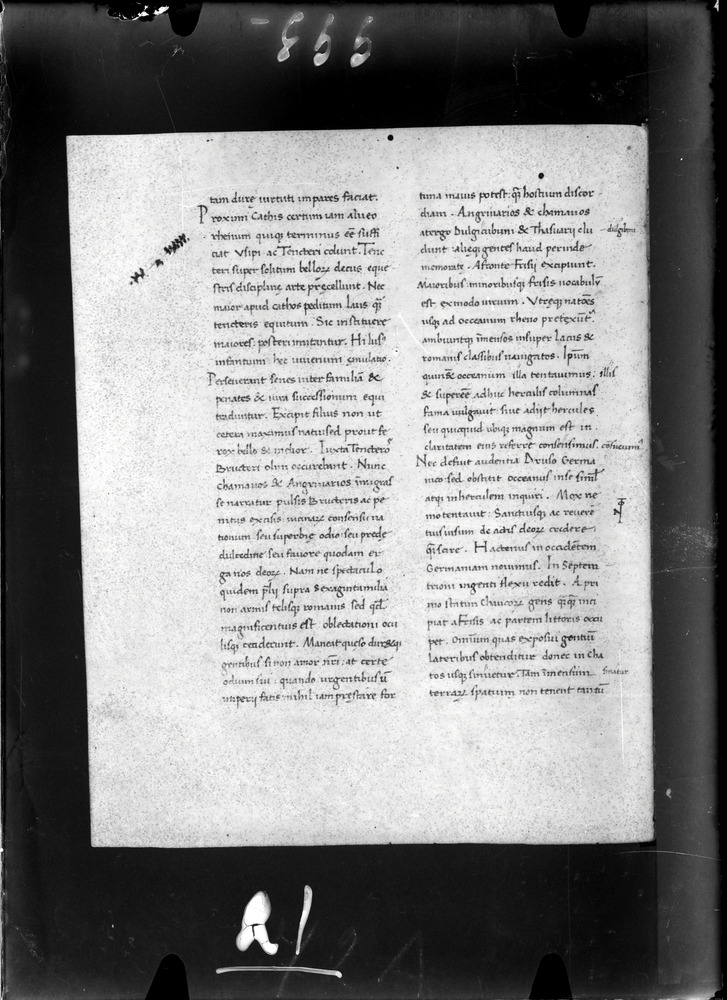 tam durę virtuti impares faciat.
Proximi Cathis certum iam alueo
rhenum quiq; terminus eē suffi
ciat Vsipi ac Tencteri colunt. Tenc
teri super solitum belloꝝ decus eque
stris disciplinę arte pręcellunt. Nec
maior apud cathos peditum laus q̄
tencteris equitum. Sic instituere
maiores. posteri imitantur. Hi lus⁹
infantium hęc iuuenum ęmulatio.
Perseuerant senes inter familiā &
penates & iura successionum equi
traduntur. Excipit filius non ut
cetera maximus natu sed prout fe
rox bello & melior. Iuxta Tencteros
Bructeri olim occurebant. Nunc
chamauos & Angriuarios īmigras
se narratur pulsis Bructeris ac pe
nitus excisis. uicinaꝝ consensu na
tionum seu superbię odio seu prede
dulcedine seu fauore quodam er
ga nos deoꝝ. Nam ne spectaculo
quidem p̄lij supra sexaginta milia
non armis telisq; romanis sed qđ
magnificentius est oblectationi ocu
lisq; ceciderunt. Maneat quęso duretq;
gentibus si non amor nr̄i: at certe
odium sui: quando urgentibus ū
imperij fatis nihil iam pręstare for
tuna maius potest: q̄ hostium discor
diam. Angriuarios & chamauos
atergo Dulgicubuni & Thasuarij clu
dunt alięq; gentes haud perinde
memorate. Afronte Frisij excipiunt.
Maioribus minoribusq; frisis uocabulū
est ex modo uirium. Vtreq; natōes
usq; ad occeanum rheno pretexūt̄.
ambiuntq; īmensos insuper lacus &
romanis classibus nauigatos. Ipsum
quin & occeanum illa tentauimus: illis
& superēē adhuc herculis columnas
fama uulgauit: siue adijt hercules
seu quicquid ubiq; magnum est in
claritatem eius referre consensimus. consueuim⁹
Nec defuit audentia Druso Germa
nico sed obstitit occeanus in se siml̄
atq; in herculem inquiri. Mox ne
mo tentauit: Sanctiusq; ac reuerē
tius uisum de actis deoꝝ credere
q̄ scire. Hactenus in occidētem
Germaniam nouimus. In Septem
trioni ingenti flexu redit. A pri
mo statim Chaucoꝝ gens q̄q̄ inci
piat a Frisis ac partem littoris occu
pet. Omnium quas exposui gentiū
lateribus obtenditur donec in cha
tos usq; sinuetur. Tam īmensum sinatur
terraꝝ spatium non tenent tantū